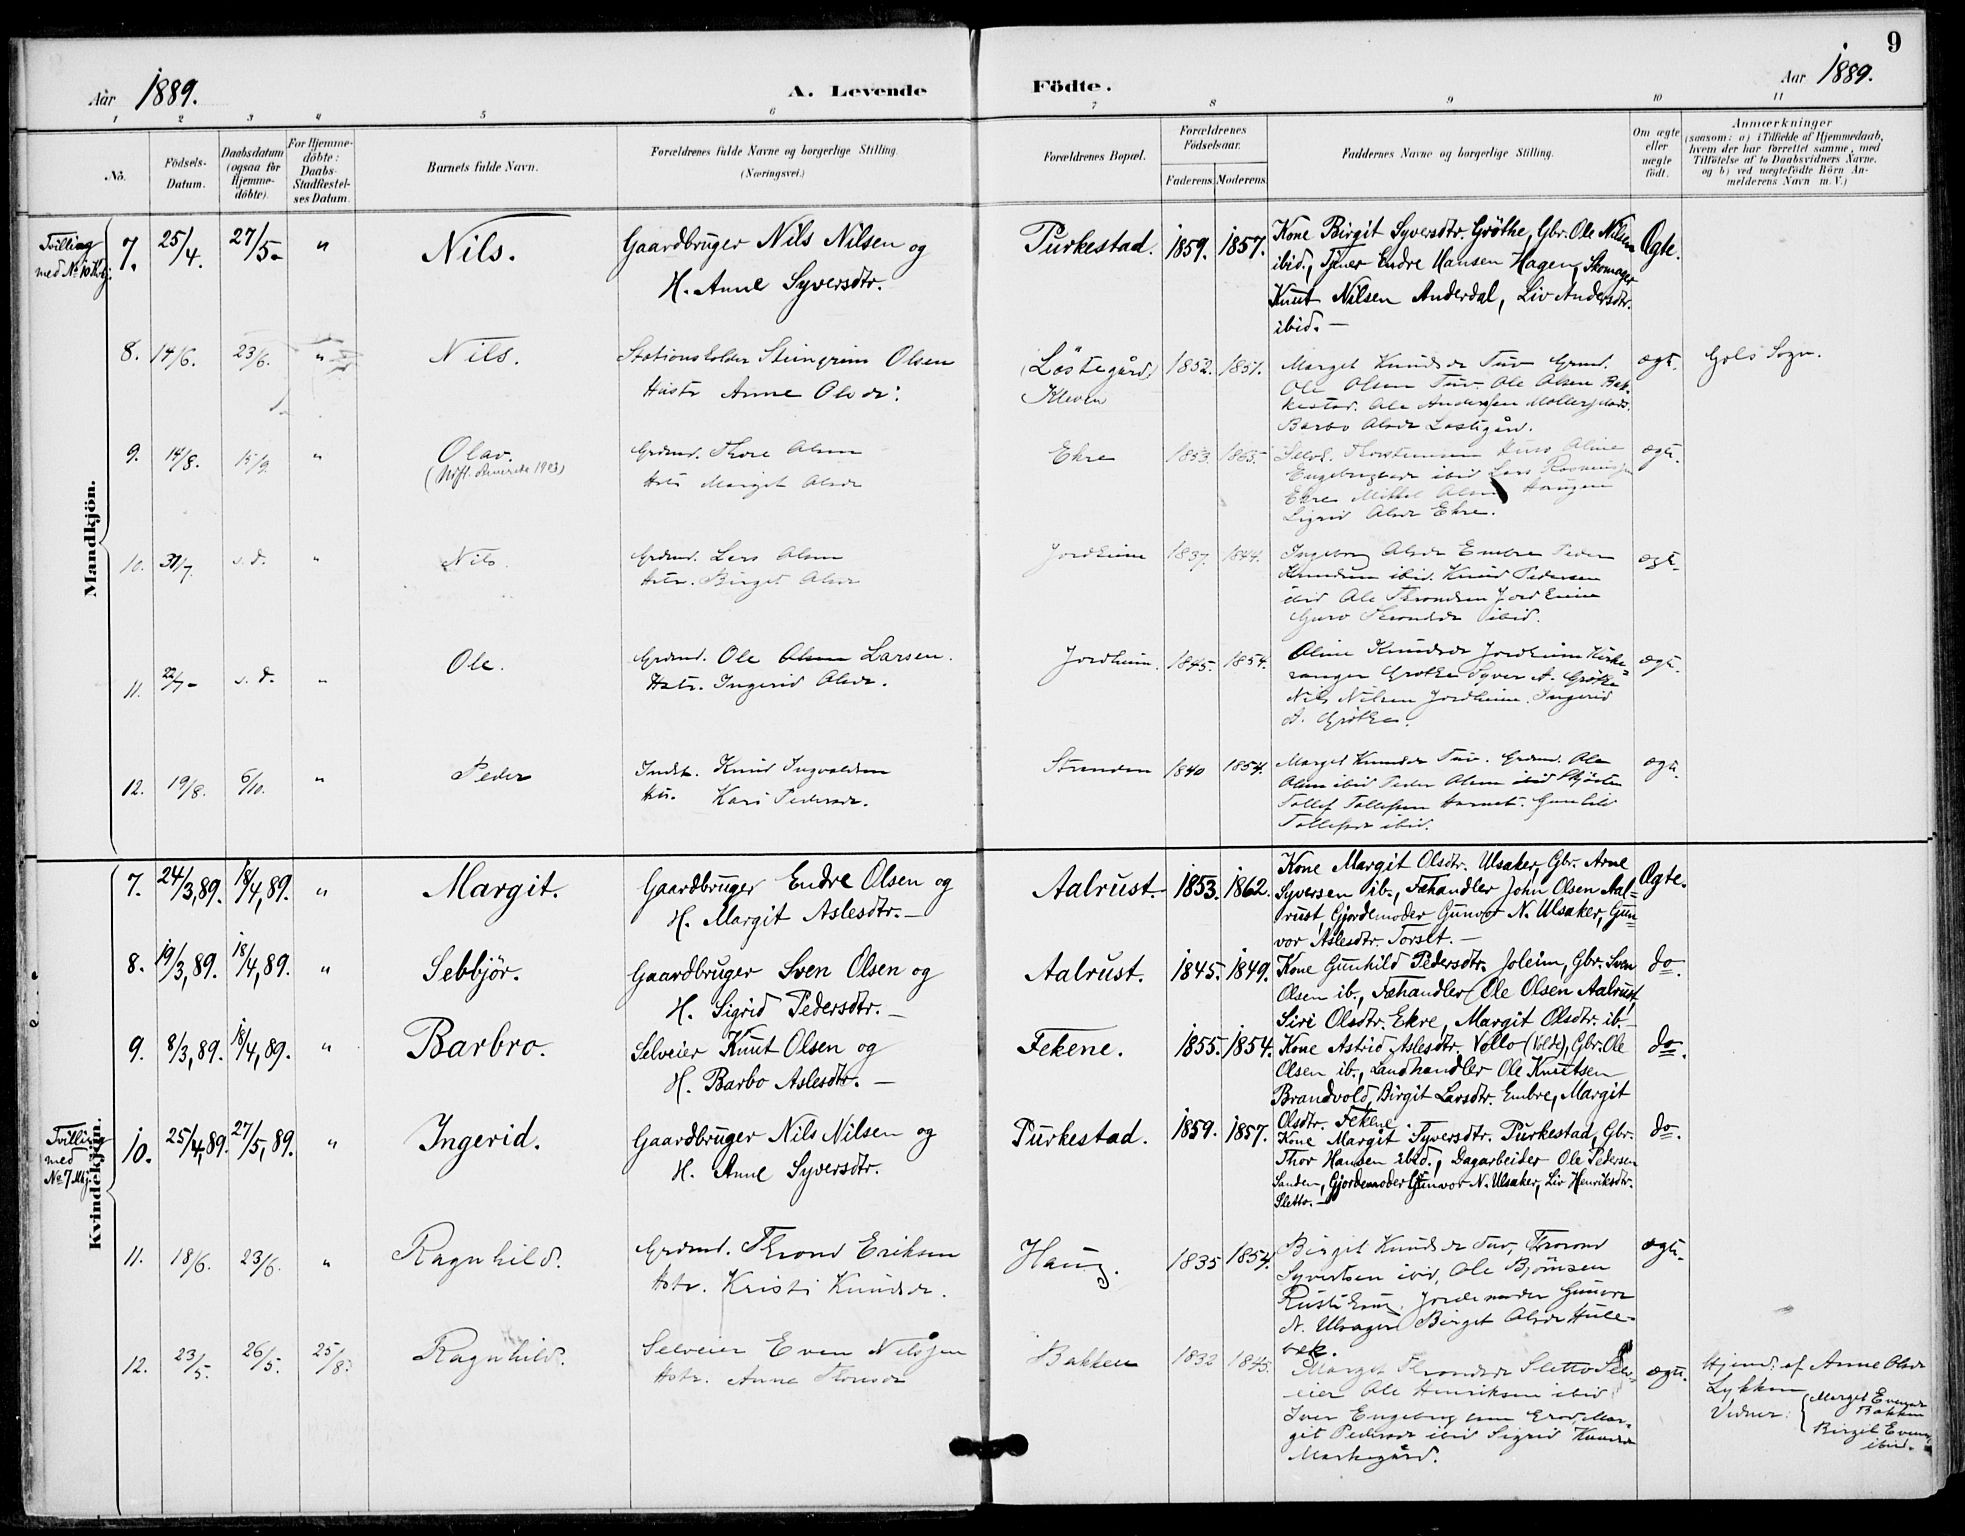 9
Aar 1889.
A. Levende Födte.
Aar 1889.
1 2 3 4 5 6 7 8 9 10 11
No.
Födsels-Datum.
Daabsdatum (ogsaa for Hjemme-döbte).
For Hjemme-döbte: Daabs-Stadfæstel-ses Datum.
Barnets fulde Navn.
Forældrenes fulde Navne og borgerlige Stilling. (Næringsvei.)
Forældrenes Bopæl.
Forældrenes Födselsaar.
Faderens. Moderens.
Faddernes Navne og borgerlige Stilling.
Om ægte eller uægte födt.
Anmærkninger
(saasom: a) i Tilfælde af Hjemmedaab,
hvem der har forrettet samme, med
Tilföielse af to Daabsvidners Navne,
og b) ved uægtefödte Börn An-
melderens Navn m. V.)
Mandkjön.
Tvilling
med No 10 Kvkj.
7. 25/4. 27/5. " Nils. Gaardbruger Nils Nilsen og
H. Anne Syversdtr.
Purkestad. 1859. 1857.
Kone Birgit Syversdtr. Gröthe, Gbr. Ole Nilsen
ibid., Tjener Endre Hansen Hagen, Skomager
Knut Nilsen Anderdal, Liv Andersdtr.
ibid. —
Ægte.
8. 14/6. 23/6. " Nils. Stationsholder Steingrim Olsen
Hustr Anne Olsdr.
(Löstegård) Kleven 1852. 1851.
Marget Knudsdr Tuv Grmd.
Ole Olsen Tuv. Ole Olsen Bak-
kestad. Ole Andersen
Barbo Olsdr Lostegård.
ægte. Gols Sogn.
9. 14/8. 15/9. " Olav.
Grdmd. Thore Olsen
Hstr Margit Olsdr
Ekre 1853. 1865.
Engebregtsdr ibid Lars
Ekre Mikkel Olsen Haugen
Sigrid Olsdr Ekre.
ægte.
10. 31/7. s. d. " Nils. Grdmd. Lars Olsen
Hstr. Birget Olsdr
Jordheim 1837. 1844.
Ingeborg Olsdr Embre Peder
Knudsen ibid. Knud Pedersen
ibid Ole Throndsen Jordheim
Guro Throndsdr ibid.
ægte.
11. 22/7. s. d. " Ole. Grdmd. Ole Olsen Larsen.
Hstr. Ingerid Olsdr.
Jordheim. 1845. 1854.
Oline Knudsdr Jordheim Kirke-
sanger Grothe Syver A. Gröthe
Nils Nilsen Jordheim. Ingerid
A. Gröthe.
ægte.
12. 19/8. 6/10. " Peder Indst. Knud Ingvaldsen
Hstr. Kari Pedersdr.
Stranden 1840 1854.
Marget Knudsdr Tuv. Grdmd. Ole
Olsen ibid Peder Olsen ibid
Tollef Tollefsen Gunhild
Tollefsdr ibid.
ægte.
Kvindekjön.
7. 24/3, 89. 18/4, 89. " Margit. Gaardbruger Endre Olsen og
H. Margit Aslesdtr. —
Aalrust. 1853. 1862.
Kone Margit Olsdtr. Ulsaker, Gbr. Arne
Syversen ib., Fæhandler John Olsen Aal-
rust, Gjordemoder Gunvor N. Ulsaker, Gun-
vor Aslesdtr. Torset. —
Ægte.
8. 19/3, 89. 18/4, 89. " Sebbjör. Gaardbruger Sven Olsen og
H. Sigrid Pedersdtr. —
Aalrust. 1845. 1849.
Kone Gunhild Pedersdtr. Joleim, Gbr. Sven
Olsen ib., Fæhandler Ole Olsen Aalrust,
Siri Olsdtr. Ekre, Margit Olsdtr. ib. —
do.
9. 8/3, 89. 18/4, 89. " Barbro. Selveier Knut Olsen og
H. Barbo Aslesdtr. —
Fekene. 1855. 1854.
Kone Astrid Aslesdtr. Vollo (Volde), Gbr. Ole
Olsen ib., Landhandler Ole Knutsen
Brandvold, Birgit Larsdtr. Embre, Margit
Olsdtr. Fekene.
do.
Tvilling
med
No 7 Mkj.
10. 25/4, 89. 27/5, 89. " Ingerid. Gaardbruger Nils Nilsen og
H. Anne Syversdtr.
Purkestad. 1859. 1857.
Kone Margit Syversdtr. Purkestad, Gbr.
Thor Hansen ibid., Dagarbeider Ole Pedersen
Sanden, Gjordemoder Gunvor N. Ulsaker, Liv Henriksdtr.
Sletto. —
do.
11. 18/6. 23/6. " Ragnhild. Grdmd. Thrond Eriksen
Hstr. Kristi Knudsdr.
Haug. 1835 1854.
Birgit Knudsdr Tuv, Thrond
Syvertsen ibid, Ole Björnsen
Jordemoder Gunvor
N. Ulsager Birget Olsdr Hule-
bek.
ægte.
12. 23/5. 26/5. 25/8. Ragnhild. Selveier Even Nilsen
Hstr. Anne Thorsdr
Bakken 1832 1845.
Marget Throndsdr Sletto Selv-
eier Ole Henriksen ibid
Iver Engebregtsen Mar-
git Pedersdr ibid Sigrid Knudsdr
Markegård.
ægte.
Hjemd. af Anne Olsdr
Lykken
Vidner: Marget Evensdr
Bakken
Birgit Evensdr
ibid.